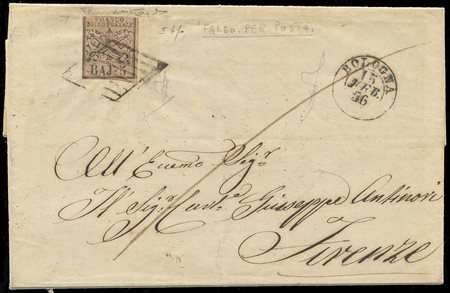 FRANCO
BOLLO POSTALE
BAJ. 5
FALSO. PER. POSTA.
BOLOGNA
15
FEB.
56
All'Ecumo Sigr
Il Sigr Cavte Giuseppe Antinori
Firenze